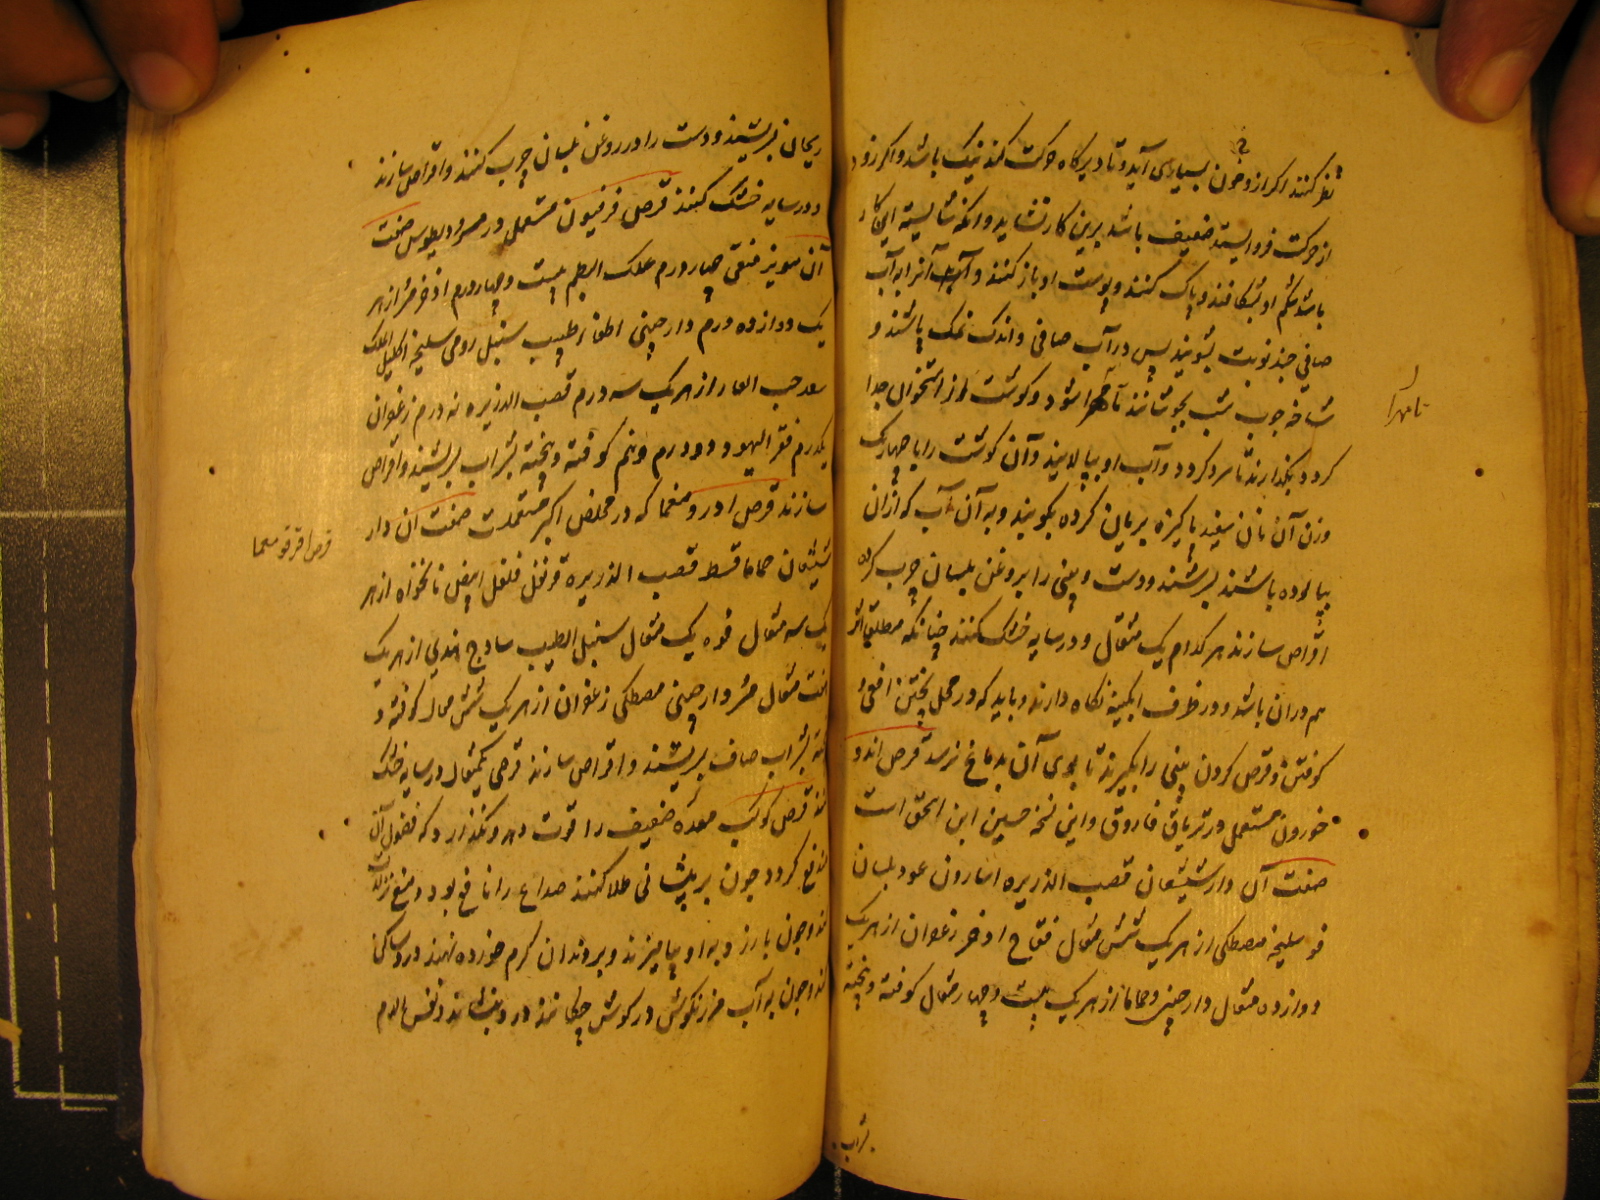 نظر کنند اکر ازو خون بسیار می آید و تا دیرکاه حرکت کند نیک باشد و اکر زود
از حرکت فرو ایستد ضعیف باشد برین کار نشاید و آنکه شایسته این کار
باشد شکم او بشکافند و پاک کنند و پوست او باز کنند و آنرا به آب
صافی چند نوبت بشویند پس در آب صافی و اندک نمک باشند و
شاخه چوب شبت بجوشانند تا مهرا شود و کوشت او از استخوان جدا
کردد بکذارند تا سرد کردد و آب او بپالایند و آن کوشت را با چهاریک
وزن آن نان سفید پاکیزه بریان کرده بکوبند و به آن آب که ازان
پالوده باشند بسرشند و دست و بینی را بروغن بلسان چرب کرده
اقراص سازند هر کدام یک مثقال و در سایه خشک کنند چنانکه مطلقا اثر
هم دران باشد و در ظرف آبکینه نکاه دارند و باید که در محل پختن افعی و
کوفتن و قرص کردن بینی را بکیرند تا بوی آن بدماغ نرسد قرص اندرو
خورون مستعمل در تریاق فاروق و این نسخه حسین ابن اسحق است
صفت آن دارشیشعان قصب الذریره اسارون عود بلسان
فو سلیخه مصطکی از هر یک شش مثقال فقاح اذخر زعفران از هر یک
دوازده مثقال دارچینی و حماما از هر یک بیست و چهار مثقال کوفته و بیخته
شراب
تا مهرا
ریحانی بسرشند و دست را در روغن بلسان چرب کنند و اقراص سازند
و در سایه خشک کنند قرص فرفیون مستعمل در مثرودیطوس صفت
آن مویز منقی چهار درم علک البطم بیست و چهار درم اذخر مر از هر
یک دوازده درم دارچینی اظفار طیب سنبل رومی سلیخه اکلیل الملک
سعد حب الغار از هر یک سه درم قصب الذریره نه درم زعفران
یکدرم قفر الیهود دو درم و نیم کوفته و بیخته بشراب بسرشند و اقراص
سازند قرص اقرو معما که در مخلص اکبر مستعملست صفت آن دار
شیشعان حماما قسط قصب الذریره قرنفل فلفل ابیض نانخواه از هر
یک سه مثقال فوه یک مثقال سنبل الطیب ساذج هندی از هر یک
هفت مثقال مر دارچینی مصطکی زعفران از هر یک شش مثقال کوفته و
بیخته بشراب صاف بسرشند و اقراص سازند قرصی یکمثقال در سایه خشک
کنند قرص کوکب معده ضعیف را قوت دهد و نکذارد که فضول آن
مندفع کردد چون بر پیشانی طلا کنند صداع را نافع بود و منع نزلات
کند و چون بارزد به او بیامیزند و بر دندان کرم خورده نهند درد ساکن
کند و چون به آب مرزنکوش در کوش چکانند درد بنشاند و نفس الدم
قرص اقرقومعما